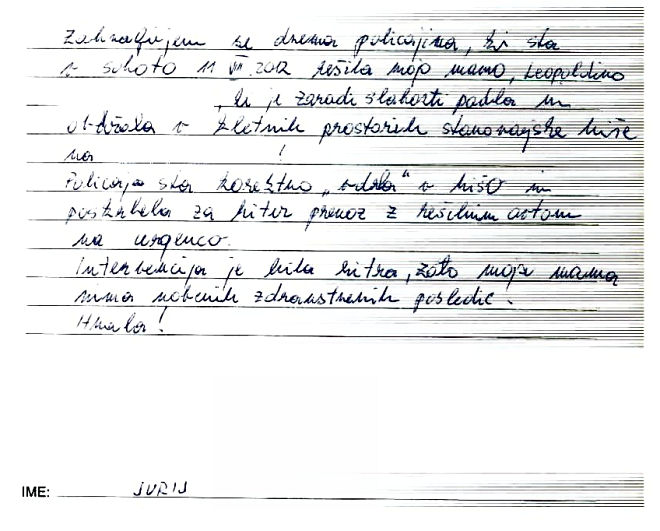 Zahvaljujem se dvema policajima, ki sta
v soboto 11 VIII 2012 rešila mojo mamo, Leopoldino
, ki je zaradi slabosti padla in
obležala v kletnih prostorih stanovanjske hiše
na !
Policaja sta korektno „vdrla“ v hišo in
poskrbela za hiter prevoz z rešilnim avtom
na urgenco.
Intervencija je bila hitra, zato moja mama
nima nobenih zdravstvenih posledic.
Hvala!
IME: JURIJ